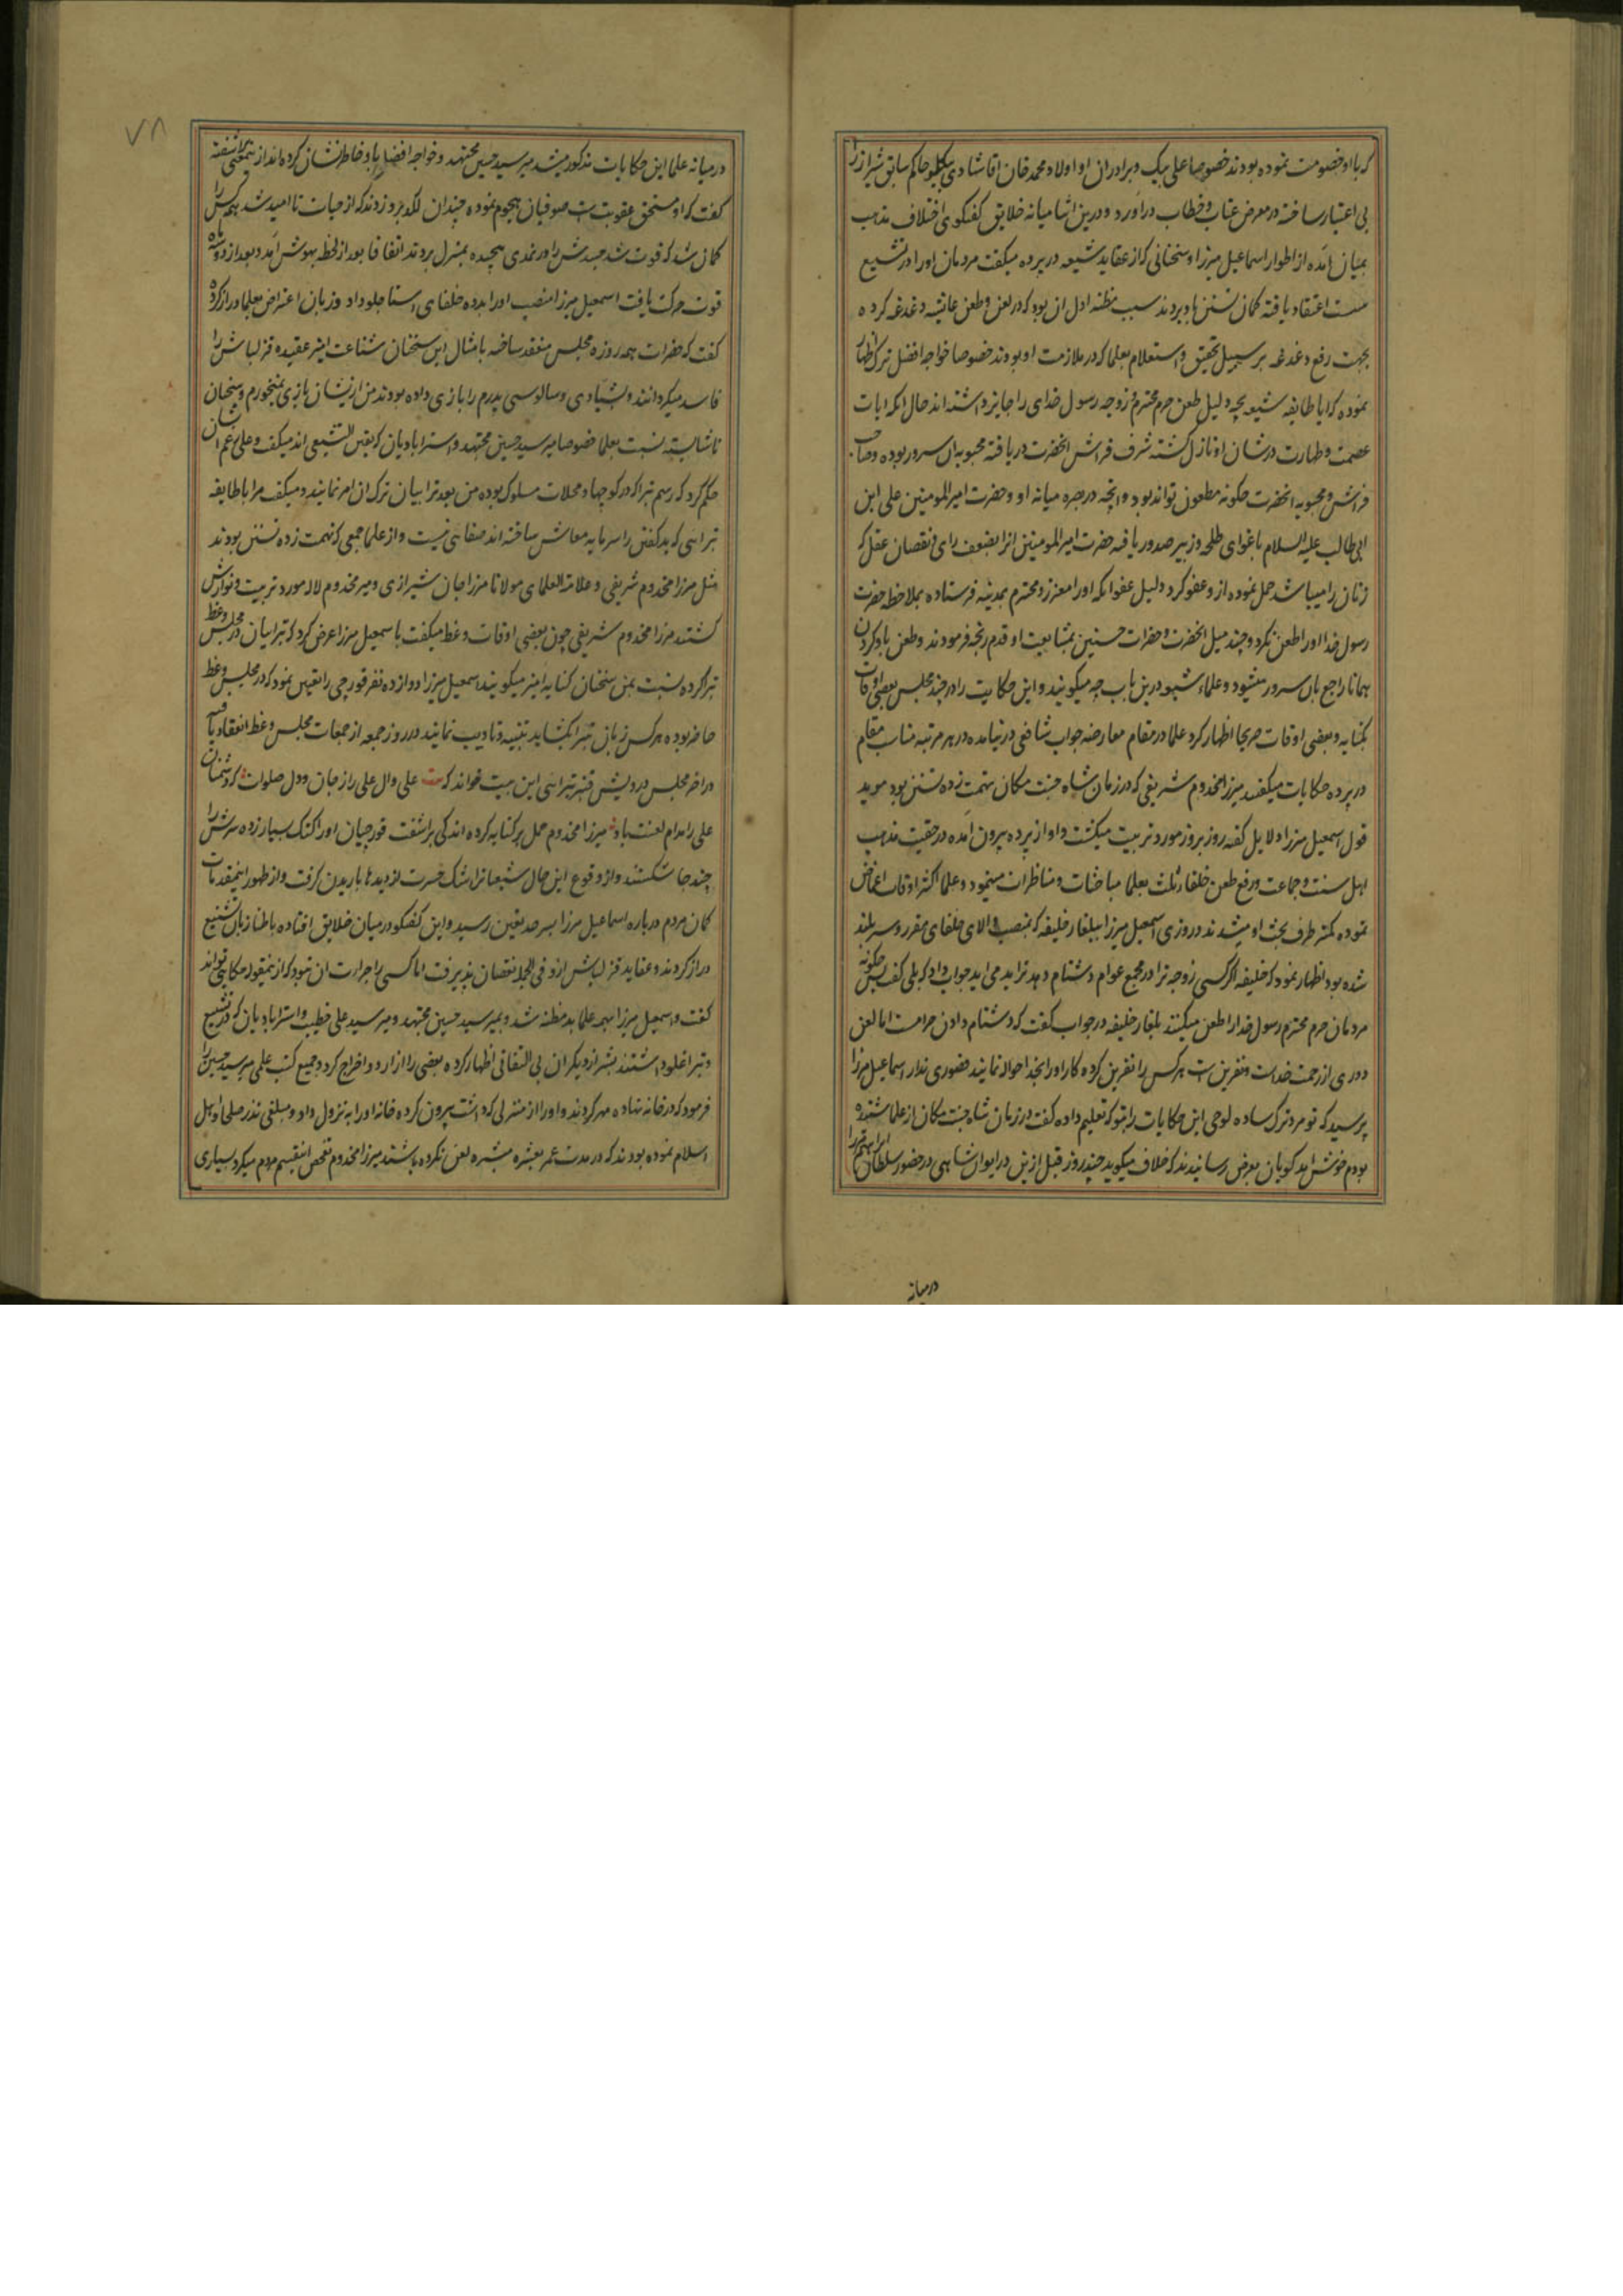 که با او خصومت نموده بودند خصوصا علی بیک و برادران او اولاد محمد خان اقا شادی بیکلو حاکم سابق شیراز را
بی اعتبار ساخته در معرض عتاب و خطاب در آورد و درین اثنا میانه خلایق گفتگوی اختلاف مذهب
بمیان آمده از اطوار اسماعیل میرزا و سخنانی که از عقاید شیعه در پرده میکفت مردمان او را در تشیع
سست اعتقاد یافته کمان تسنن باو بردند سبب مظنه اول ان بود که در لعن و طعن عایشه دغدغه کرده
بجهت رفع دغدغه بر سبیل تحقیق و استعلام بعلما که در ملازمت او بودند خصوصا خواجه افضل ترکه اظهار
نموده که ایا طایفه شیعه بچه دلیل طعن حرم محترم و زوجه رسول خدای را جایز داشته اند حال انکه ایات
عصمت و طهارت در شان او نازل کشته شرف فراش انحضرت دریافته محبوبه ان سرور بوده و صاحب
فراش و محبوبه انحضرت چکونه مطعون تواند بود و انچه در بصره میانه او و حضرت امیر المومنین علی ابن
ابی طالب علیه السلام باغوای طلحه و زبیر صدور یافته حضرت امیر المومنین انرا بضعف رای و نقصان عقل که
زنان را میباشد حمل نموده از و عفو کرد دلیل عفو انکه او را معزز و محترم بمدینه فرستاده بملاحظه حضرت
رسول خدا او را طعن نکرد و چند میل انحضرت و حضرات حسنین بمشایعت او قدم رنجه فرمودند و طعن باو کردن
همانا راجع بان سرور میشود و علماء شیعه درین باب چه میکویند و این حکایت را در چند مجلس بعضی اوقات
بکنایه و بعضی اوقات صریحا اظهار کرد علما در مقام معارضه جواب شافعی در نیامده در هر مرتبه مناسب مقام
در پرده حکایات میکفتند میرزا مخدوم شریفی که در زمان شاه جنت مکان تهمت زده تسنن بود موید
قول اسمعیل میرزا دلایل کفته روز بروز مورد تربیت میکشت و او از پرده بیرون آمده در حقیت مذهب
اهل سنت و جماعت و رفع طعن خلفاء ثلث بعلما مباحثات و مناظرات مینمود و علما اکثر اوقات اغماض
نموده کمتر طرف بحث او میشدند در روزی اسمعیل میرزا ببلغار خلیفه که بمنصب والای خلفای مقرر و سربلند
شده بود اظهار نمود که خلیفه اگر کسی زوجه ترا در مجمع عوام دشنام دهد ترا بد می اید جواب داد که بلی کفت پس چکونه
مردمان حرم محترم رسول خدا را طعن میکنند بلغار خلیفه در جواب کفت که دشنام دادن حرامست اما لعن
دوری از رحمت خداست و نفرین است هر کس را نفرین کرده کار او را بخدا حواله نمایند قصوری ندارد اسماعیل میرزا
پرسید که تو مرد ترک ساده لوحی این حکایات را بتو که تعلیم داده کفت در زمان شاه جنت مکان از علما شنیده
بودم خوش امد کویان بعرض رسانیدند که خلاف میکوید چند روز قبل ازین در ایوان شاهی در حضور سلطان ابراهیم میرزا
درمیانه
۷۸
در میانه علما این حکایات مذکور میشد میر سید حسین مجتهد و خواجه افضل باو خاطر نشان کرده اند از نیمعنی آشفته
کفت که او مستحق عقوبت است صوفیان هجوم نموده چندان لکد برو زدند که از حیات نا امید شد همه کس را
کمان شد که فوت شد جسدش را در نمدی پیچیده بمنزل بردند اتفاقا بعد از لحظه بهوش آمد و بعد از دو سه ماه
قوت حرکت یافت اسمعیل میرزا منصب او را بدده خلفای استاجلو داد و زبان اعتراض بعلما دراز کرده
کفت که حضرات همه روزه مجلس منعقد ساخته بامثال این سخنان شناعت امیز عقیده قزلباش را
فاسد میکردانند و بشیادی و سالوسی پدرم را بازی داده بودند من از ایشان بازی نمیخورم و سخنان
ناشایسته نسبت بعلما خصوصا میر سید حسین مجتهد و استرابادیان که بقین التشیعی اند میکفت و علی رغم ایشان
حکم کرد که رسم تبرا که در کوچها و محلات مسلوک بوده من بعد تبراییان ترک ان امر نمایند و میکفت مرا با طایفه
تبرایی که بد کفتن را سرمایه معاش ساخته اند صفایی نیست و از علما جمعی که تهمت زده تسنن بودند
مثل میرزا مخدوم شریفی و علامة العلمای مولانا میرزا جان شیرازی و میر مخدوم لاله مورد تربیت و نوازش
کشتند میرزا مخدوم شریفی چون بعضی اوقات وعظ میکفت باسمعیل میرزا عرض کرد که تبراییان در مجلس وعظ
تبرا کرده نسبت بمن سخنان کنایه امیز میکویند اسمعیل میرزا دوازده نفر قورچی را تعیین نمود که در مجلس وعظ
حاضر بوده هر کس زبان تبرا بکشاید تنبیه و تادیب نمایند در روز جمعه از جمعات مجلس وعظ انعقاد یافته
در اخر مجلس درویش قنبر تبرایی این بیت خواند که بیت علی و ال علی را ز جان و دل صلوات که دشمنان
علی را مدام لعنت باد میرزا مخدوم حمل بر کنایه کرده اندکی براشفت قورچیان او را کتک بسیار زده سرش را
چند جا شکستند و از وقوع این حال شیعیانرا اشک حسرت از دیدها باریدن کرفت و از ظهور اینمقدمات
کمان مردم درباره اسماعیل میرزا بسرحد یقین رسید و این کفتکو در میان خلایق افتاده باطنا زبان تشنیع
دراز کردند و عقاید قزلباش ازو فی الجمله نقصان پذیرفت اما کسی را جرات ان نبود که از ینمقوله حکایتی تواند
کفت و اسمعیل میرزا بهمه علما بد مظنه شد و بمیر سید حسین مجتهد و میر سید علی خطیب و استرابادیان که در تشیع
و تبرا غلو داشتند بیشتر از دیکران بی التفاتی اظهار کرده بعضی را از اردو اخراج کرد و جمیع کتب علمی میر سید حسین را
فرمود که در خانه نهاده مهر کردند و او را از منزلی که داشت بیرون کرده خانه او را به نزول داد و مبلغی نذر صلحا و اهل
اسلام نموده بودند که در مدت عمر بعشره مبشره لعن نکرده باشند میرزا مخدوم تفحص اینقسم مردم میکرد بسیاری